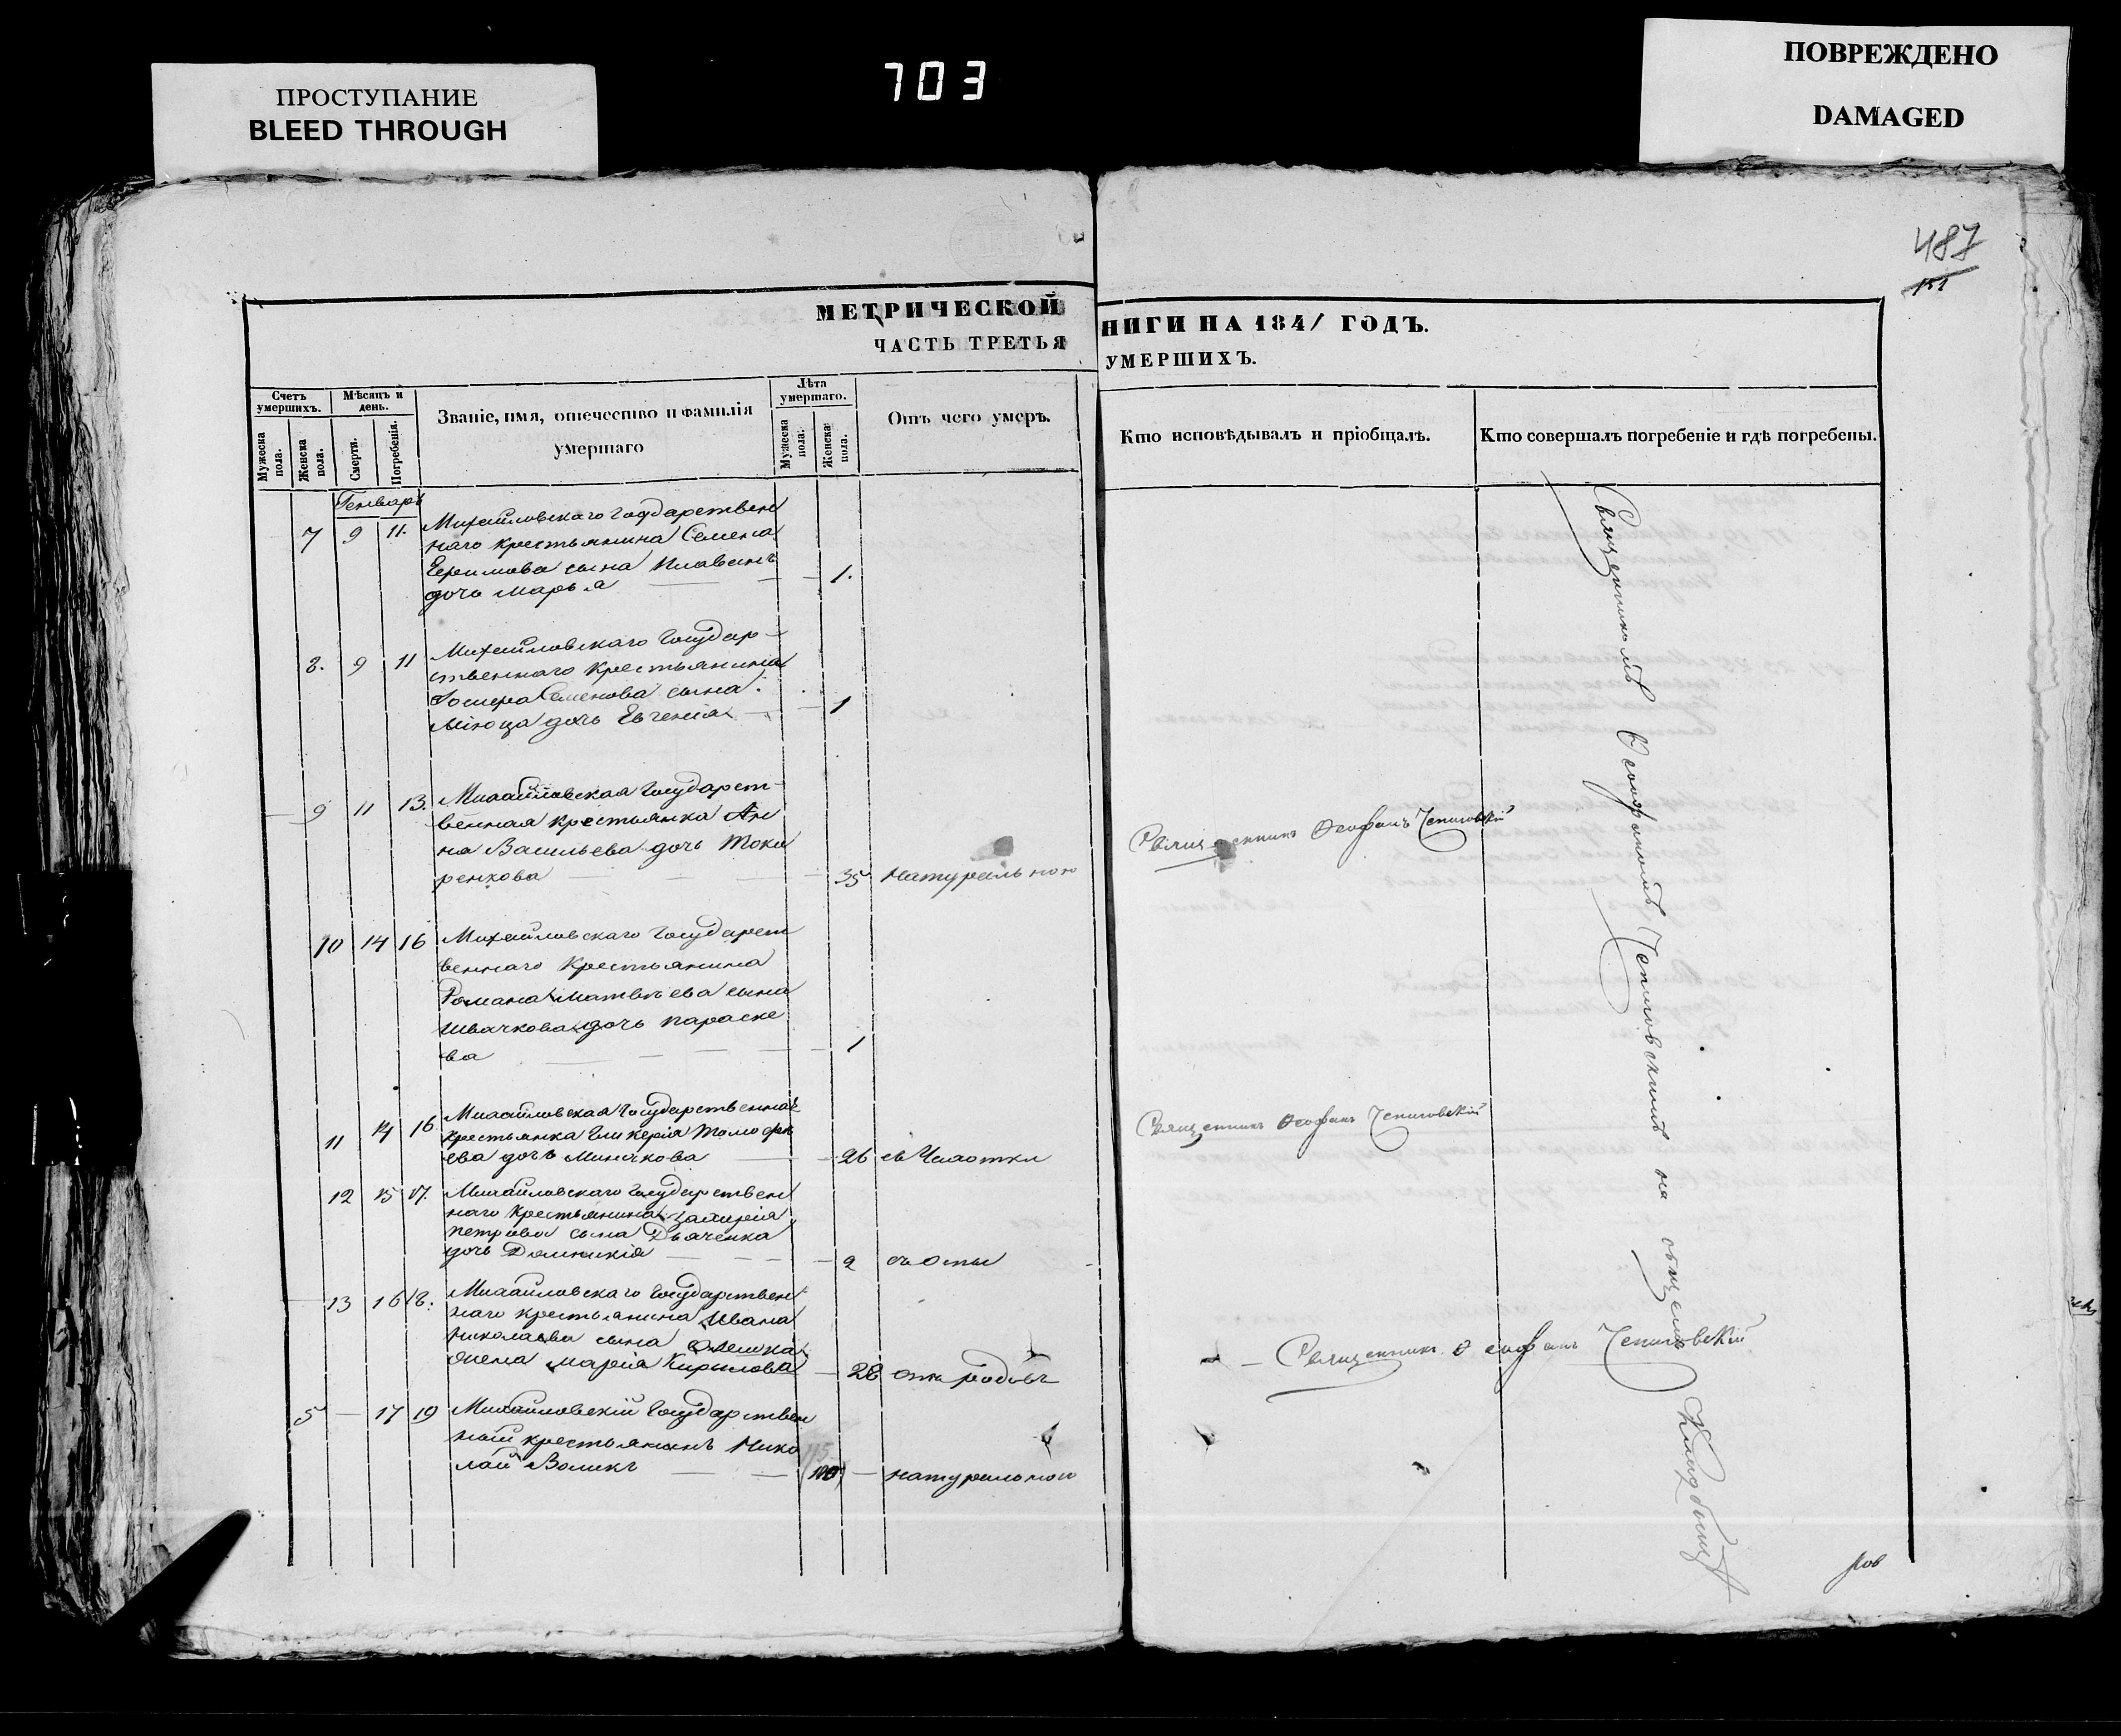 ПРОСТУПАНИЕ
BLEED THROUGH
703
ПОВРЕЖДЕНО
DAMAGED
487
151
МЕТРИЧЕСКОЙ
НИГИ НА 1841 ГОДЪ.
ЧАСТЬ ТРЕТЬЯ
УМЕРШИХЪ.
Счетъ умершихъ.
Мужеска пола.
Женска пола.
Мѣсяцъ и день.
Смерти.
Погребенія.
Званіе, имя, отечество и фамилія
умершаго
Лѣта умершаго.
Мужеска пола.
Женска пола.
Отъ чего умеръ.
Кто исповѣдывалъ и пріобщалъ.
Кто совершалъ погребеніе и гдѣ погребены.
Генваръ
7 9 11. Михайловскаго государствен
наго крестьянина Семена
сына
дочь Марья — 1.
8. 9 11 Михайловскаго Государ-
ственнаго крестьянина
Семенова сына
дочь Евгенія — 1
9 11 13. Михайловская Государст-
венная крестьянка Ан
на Васильева дочь Тока
ренкова — 35 натуральною
Священникъ Ѳеофанъ
10 14 16 Михайловскаго Государст
веннаго Крестьянина
Романа Матвѣева сына
Швачкова дочь Параске
ва — 1
11 14 16 Михайловская Государственная
крестьянка Гликерія Тимофѣ
ева дочь Минакова — 26
Священникъ Ѳеофанъ
12 15 17. Михайловскаго Государствен
наго Крестьянина Захарія
Петрова сына Дьяченка
дочь Домникія — 2 съ Оспы
13 16 18. Михайловскаго Государствен
наго крестьянина Ивана
Николаева сына
жена Марія Кирилова — 28 отъ родовъ
Священникъ Ѳеофанъ
5 — 17 19 Михайловскій Государствен
ный крестьянинъ Нико
лай Воликъ — 100 — натуральною
Священникомъ Ѳеофаномъ на общемъ Кладбищѣ